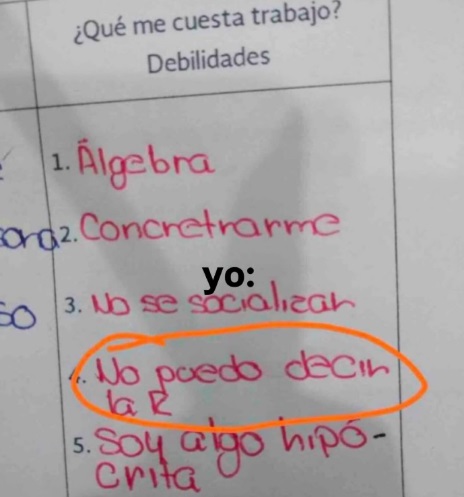 ¿Qué me cuesta trabajo?
Debilidades
1. Álgebra
2. Concretrarme
yo:
3. No se socializar
4. No puedo decir
la R
5. Soy algo hipó-
crita